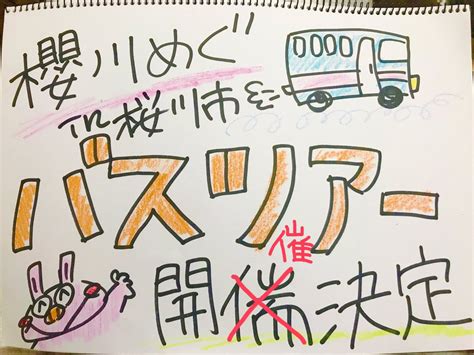 櫻川めぐ
in桜川市を
バスツアー
催
開催決定